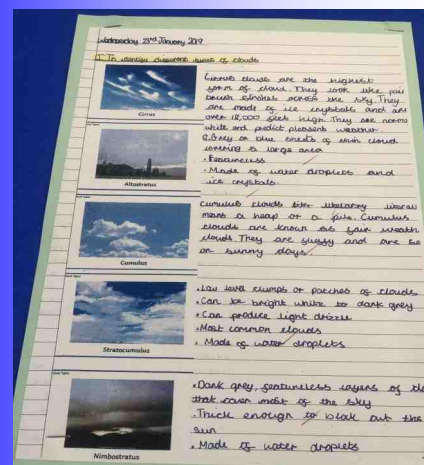 Wednesday 23rd January 2019
L.I. To identify different types of clouds
Cirrus clouds are the highest
form of cloud. They look like pai
brush strokes across the sky. They
are made of ice crystals and are
over 18,000 feet high. They are norm
white and predict pleasent weather.
Cirrus
Grey or blue sheets of thin cloud
covering a large area
• Featureless
• Made of water droplets and
ice crystals.
Altostratus
Cumulus clouds
means a heap or a pile. Cumulus
clouds are known as fair weath
clouds. They are fluffy and are se
on sunny days.
Cumulus
• Low level clumps or patches of clouds
• Can be bright white to dark grey
• Can produce light drizzle
• Most common clouds
• Made of water droplets
Stratocumulus
• Dark grey, featureless layers of clo
that cover most of the sky
• Thick enough to block out the
sun
• Made of water droplets
Nimbostratus